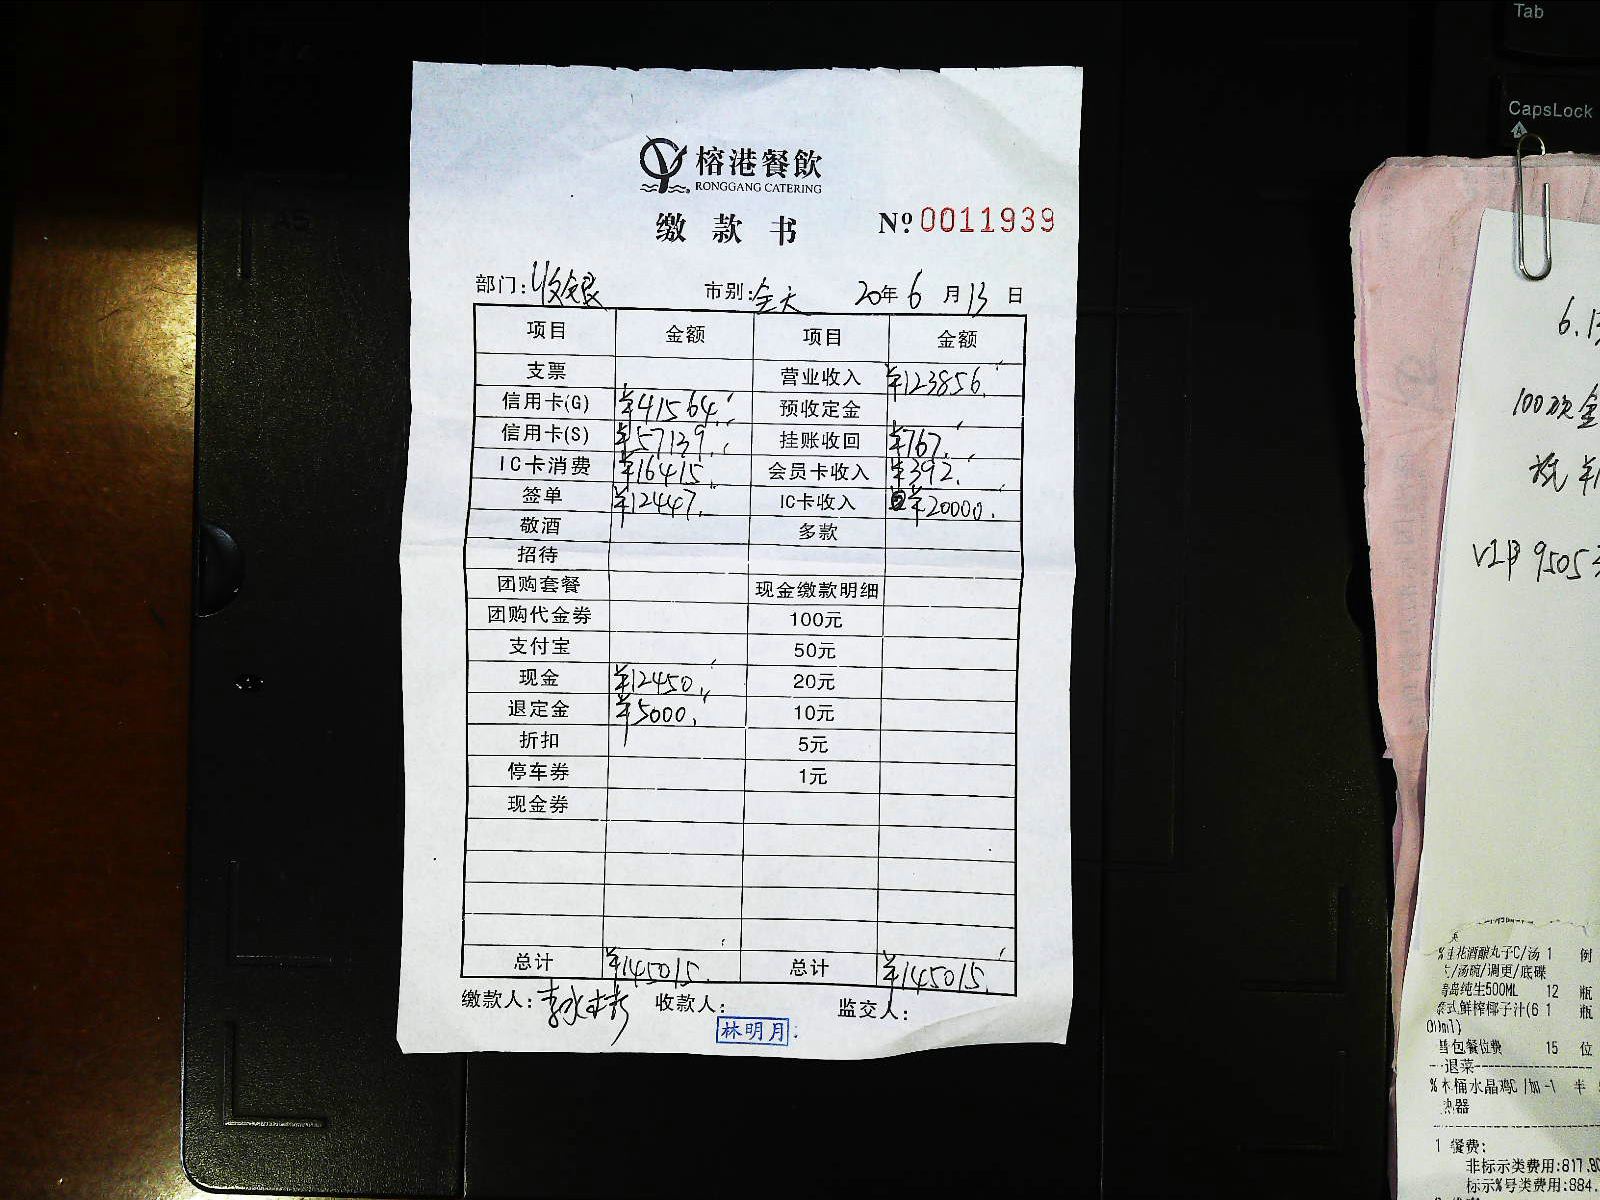 Tab
CapsLock
榕港餐飲
RONGGANG CATERING
缴款书 №0011939
部门:收银 市别:全天 20年6月13日
项目 金额 项目 金额
支票 营业收入 ¥123856.
信用卡(G) ¥41564. 预收定金
信用卡(S) ¥57139. 挂账收回 ¥767.
IC卡消费 ¥16415. 会员卡收入 ¥392.
签单 ¥12447. IC卡收入 ¥20000.
敬酒 多款
招待
团购套餐 现金缴款明细
团购代金券 100元
支付宝 50元
现金 ¥12450. 20元
退定金 ¥5000. 10元
折扣 5元
停车券 1元
现金券
总计 ¥145015. 总计 ¥145015.
缴款人: 收款人: 监交人:
林明月
6.13
VIP 9505
桂花酒酿丸子C/汤 1 例
/汤碗/调更/底碟
青岛纯生500ML 12 瓶
泰式鲜榨椰子汁(6 1 瓶
00ml)
面包餐位费 15 位
退菜
%木桶水晶鸡C /加 -1 半
热器
1 餐费:
非标示类费用:817.80
标示%号类费用:884.